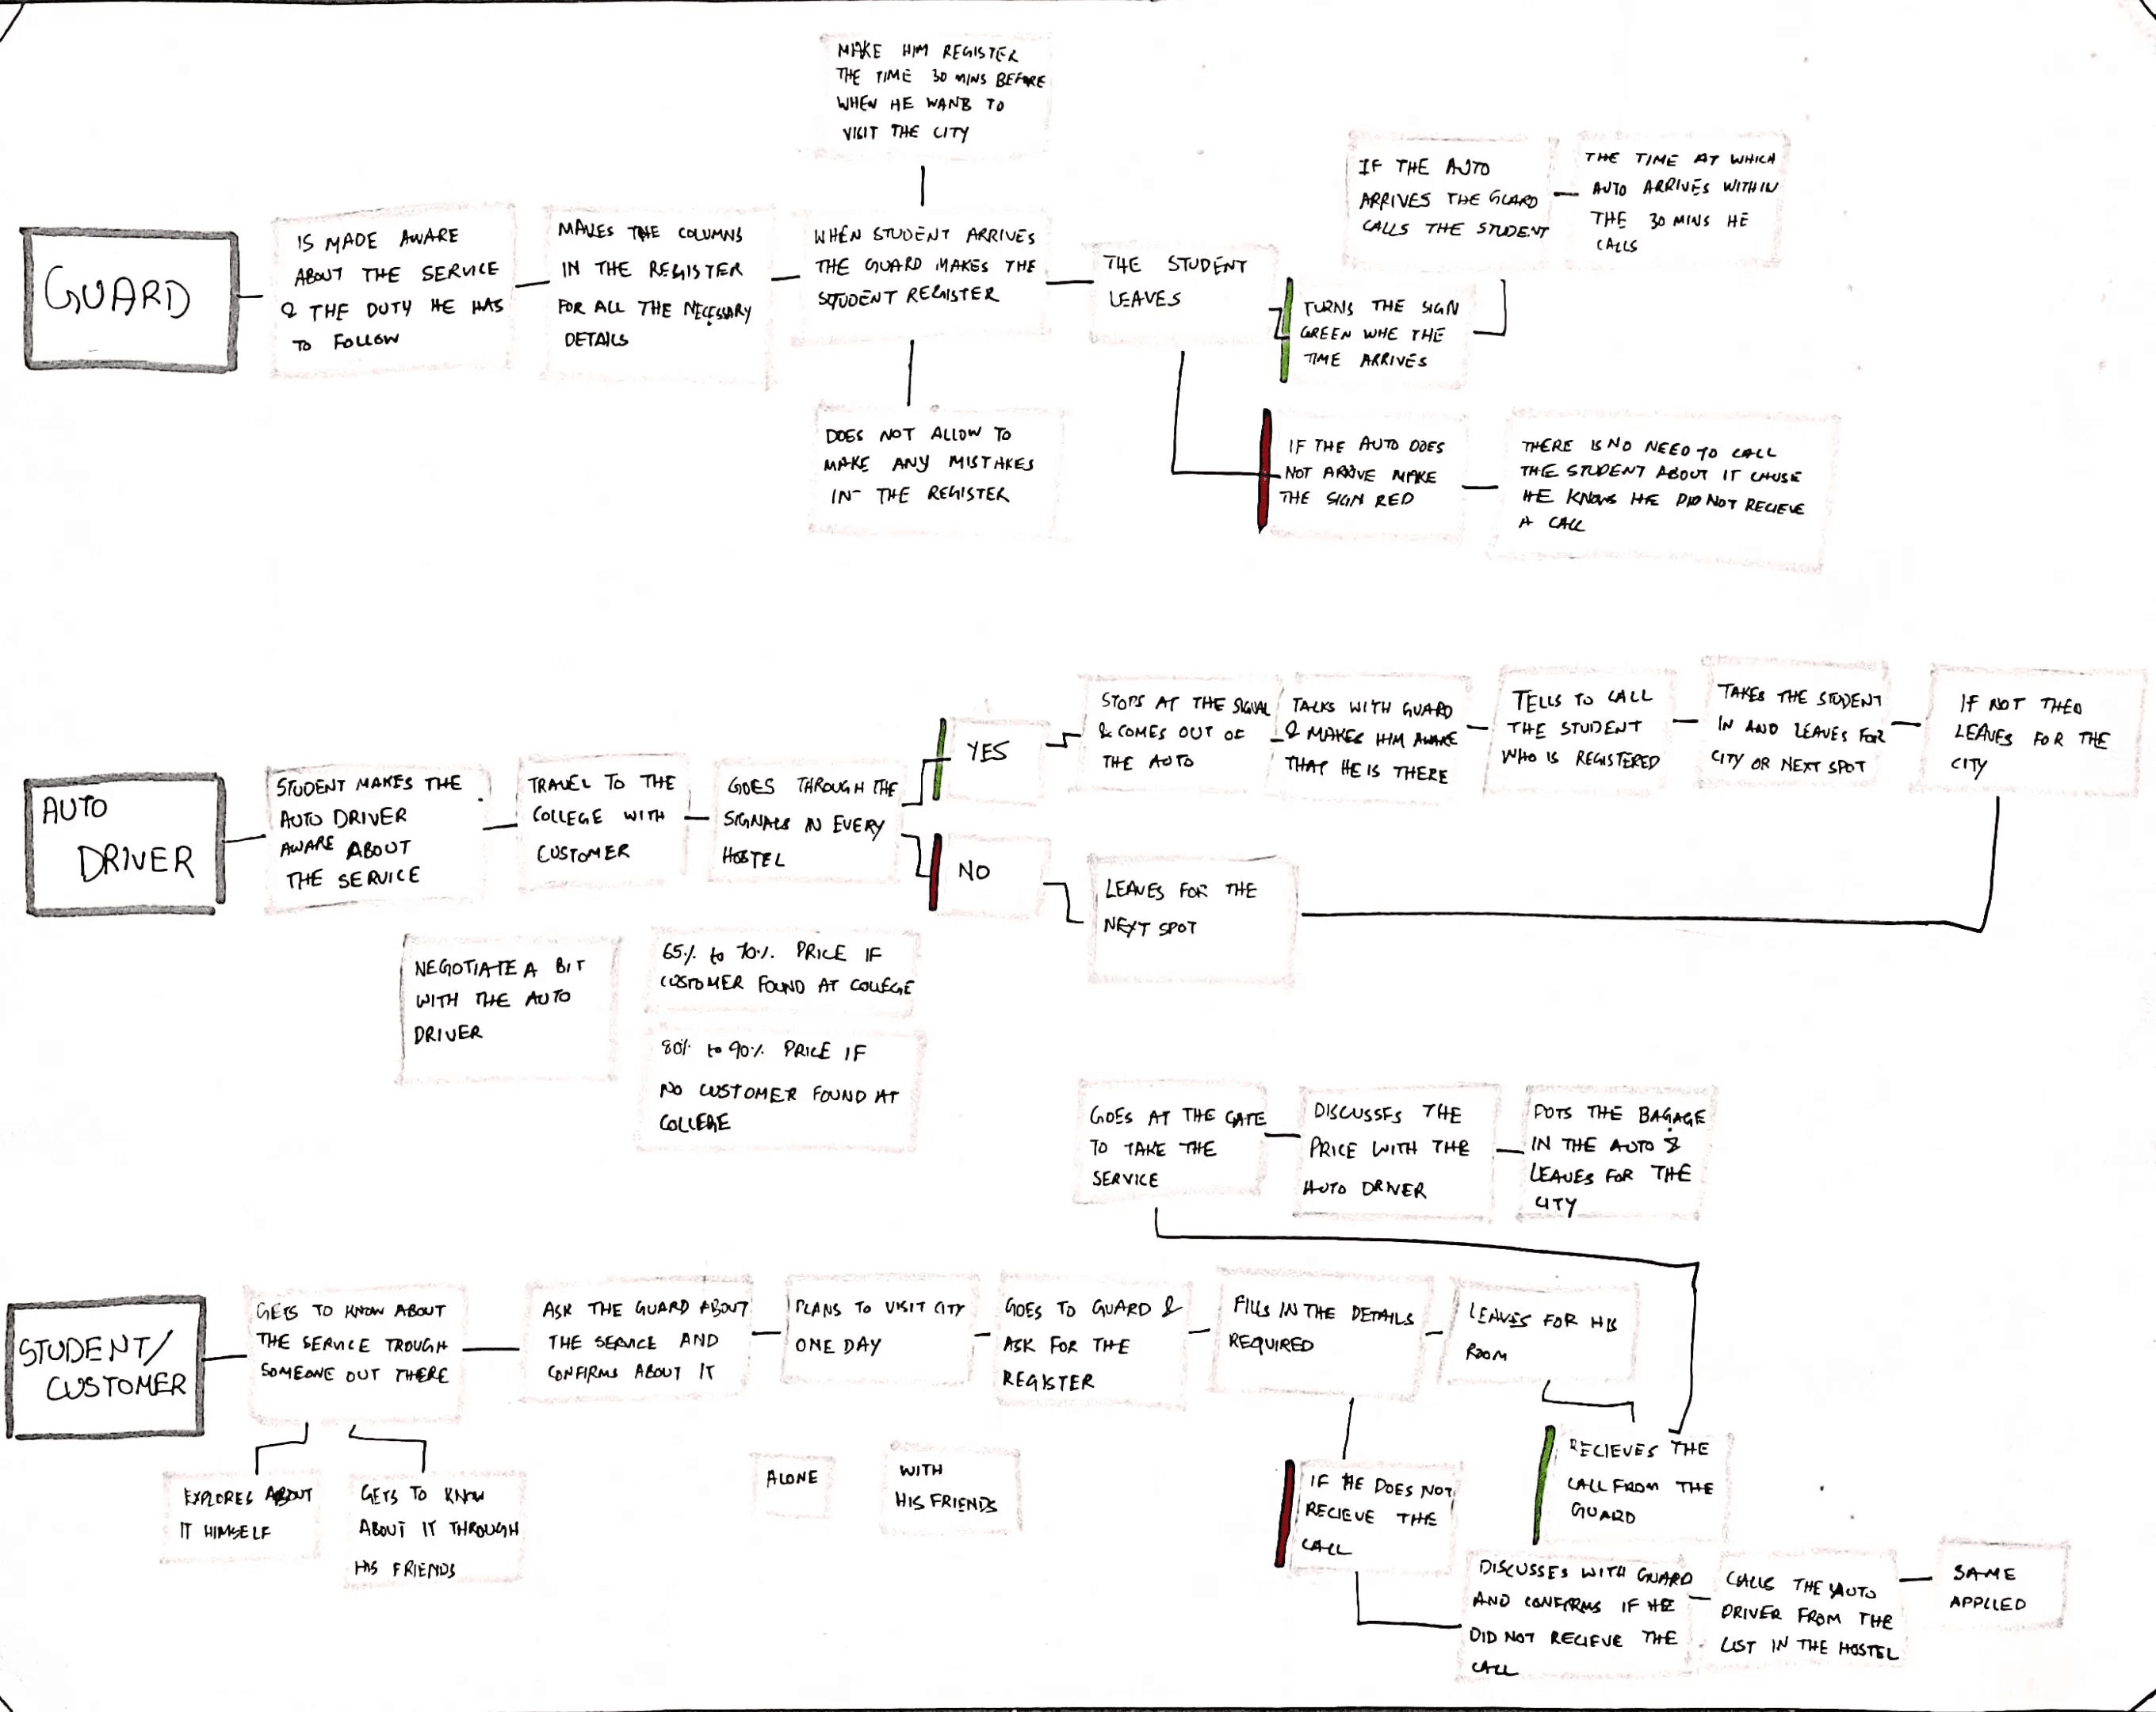 MAKE HIM REGISTER
THE TIME 30 MINS BEFORE
WHEN HE WANB TO
VISIT THE CITY
GUARD
IS MADE AWARE
ABOUT THE SERVICE
& THE DUTY HE HAS
TO FOLLOW
MAKES THE COLUMNS
IN THE REGISTER
FOR ALL THE NECESSARY
DETAILS
WHEN STUDENT ARRIVES
THE GUARD MAKES THE
STUDENT REGISTER
DOES NOT ALLOW TO
MAKE ANY MISTAKES
IN THE REGISTER
THE STUDENT
LEAVES
IF THE AUTO
ARRIVES THE GUARD
CALLS THE STUDENT
THE TIME AT WHICH
AUTO ARRIVES WITHIN
THE 30 MINS HE
CALLS
TURNS THE SIGN
GREEN WHE THE
TIME ARRIVES
IF THE AUTO DOES
NOT ARRIVE MAKE
THE SIGN RED
THERE IS NO NEED TO CALL
THE STUDENT ABOUT IT CAUSE
HE KNOWS HE DID NOT RECIEVE
A CALL
AUTO
DRIVER
STUDENT MAKES THE
AUTO DRIVER
AWARE ABOUT
THE SERVICE
TRAVEL TO THE
COLLEGE WITH
CUSTOMER
GOES THROUGH THE
SIGNALS IN EVERY
HOSTEL
YES
STOPS AT THE SIGNAL
& COMES OUT OF
THE AUTO
TALKS WITH GUARD
& MAKES HIM AWARE
THAT HE IS THERE
TELLS TO CALL
THE STUDENT
WHO IS REGISTERED
TAKES THE STUDENT
IN AND LEAVES FOR
CITY OR NEXT SPOT
IF NOT THEN
LEAVES FOR THE
CITY
NO
LEAVES FOR THE
NEXT SPOT
NEGOTIATE A BIT
WITH THE AUTO
DRIVER
65% to 70% PRICE IF
CUSTOMER FOUND AT COLLEGE
80% to 90% PRICE IF
NO CUSTOMER FOUND AT
COLLEGE
GOES AT THE GATE
TO TAKE THE
SERVICE
DISCUSSES THE
PRICE WITH THE
AUTO DRIVER
PUTS THE BAGAGE
IN THE AUTO &
LEAVES FOR THE
CITY
STUDENT/
CUSTOMER
GETS TO KNOW ABOUT
THE SERVICE TROUGH
SOMEONE OUT THERE
EXPLORES ABOUT
IT HIMSELF
GETS TO KNOW
ABOUT IT THROUGH
HIS FRIENDS
ASK THE GUARD ABOUT
THE SERVICE AND
CONFIRMS ABOUT IT
PLANS TO VISIT CITY
ONE DAY
ALONE
WITH
HIS FRIENDS
GOES TO GUARD &
ASK FOR THE
REGISTER
FILLS IN THE DETAILS
REQUIRED
LEAVES FOR HIS
ROOM
IF HE DOES NOT
RECIEVE THE
CALL
RECIEVES THE
CALL FROM THE
GUARD
DISCUSSES WITH GUARD
AND CONFIRMS IF HE
DID NOT RECIEVE THE
CALL
CALLS THE AUTO
DRIVER FROM THE
LIST IN THE HOSTEL
SAME
APPLIED